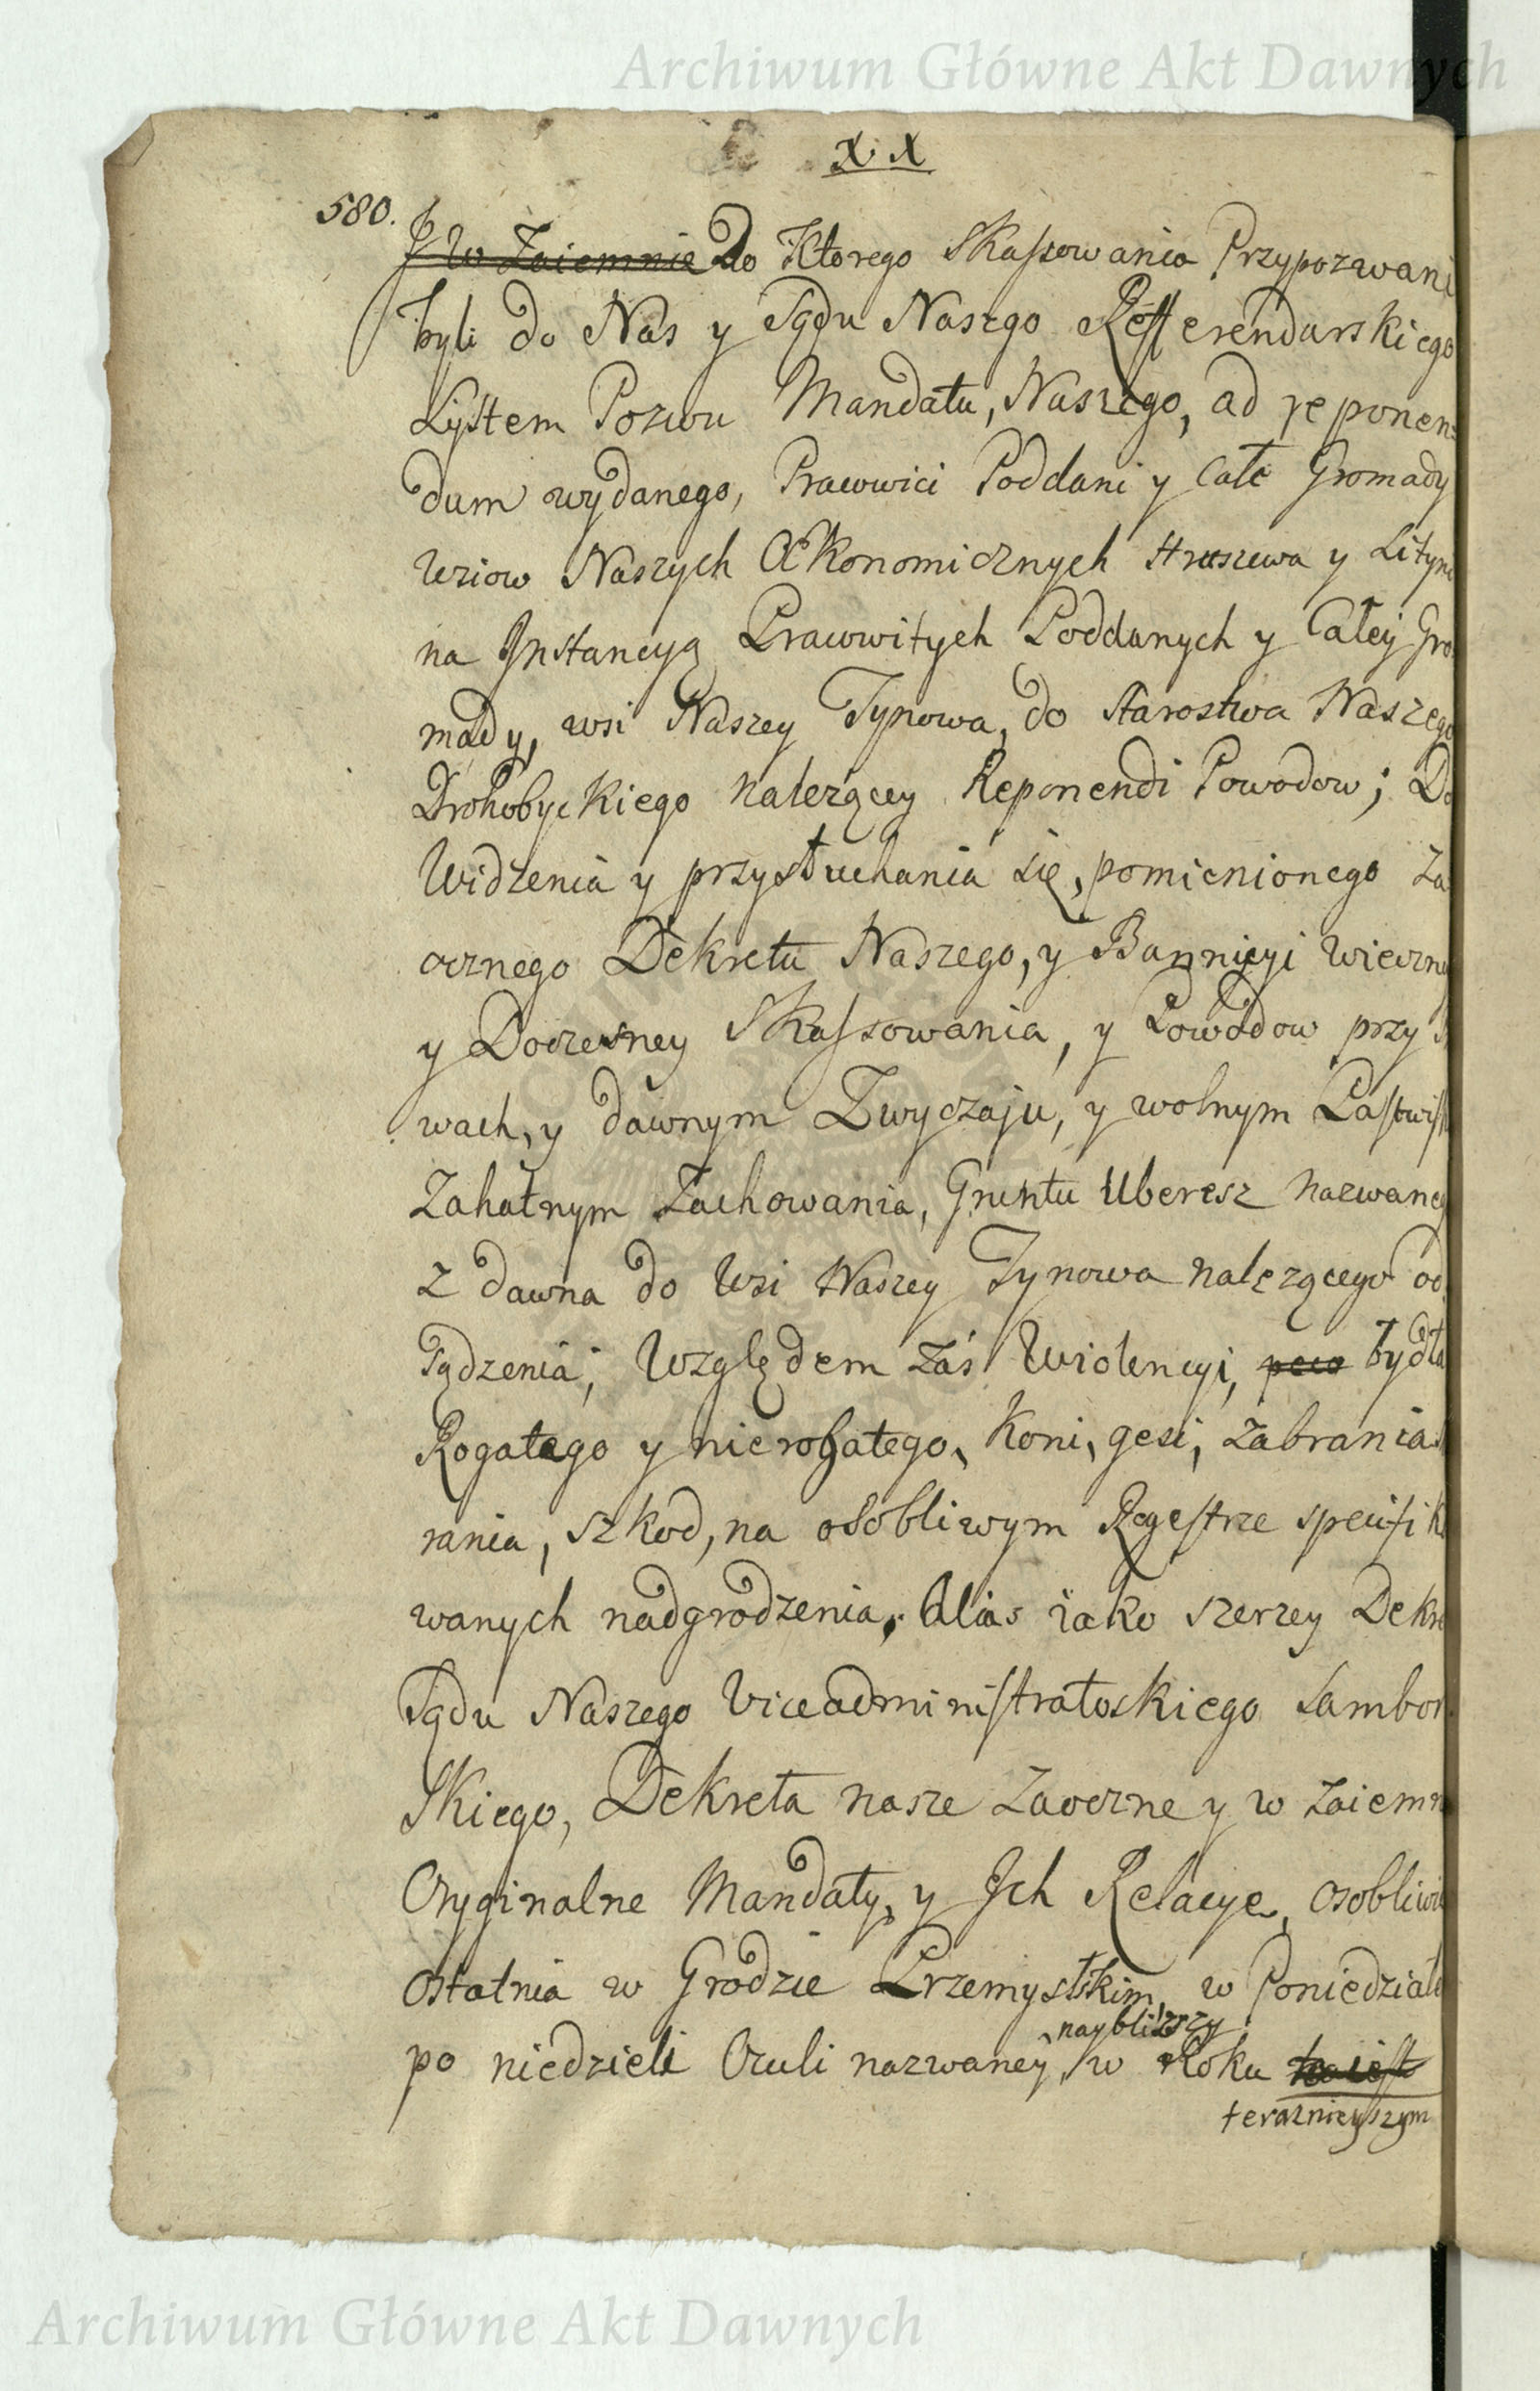 Archiwum Główne Akt Dawnych
X. X
580.
J w Zaiemnie Do Ktorego Skassowania Przypozwani
byli do Nas y Sądu Naszgo Refferendarskiego
Lystem Pozwu Mandatu, Naszego, ad reponen=
dum wydanego, Pracowici Poddani y Całe Gromady
wsiow Naszych Œkonomicznych Hruszewa y Lityn
na Instancyą Pracowitych Poddanych y Całey Gro
mady, wsi Naszey Tynowa, do Starostwa Naszego
Drohobyckiego nalezącey Reponendi Powodow; Do
Widzenia y przysłuchania się, pomienionego Za
ocznego Dekretu Naszego, y Bannicyi wieczn
y Doczesney Skassowania, y Powodow przy
wach, y dawnym Zwyczaju, y wolnym Pastwisk
Zahatnym Zachowania, Gruntu Uberesz nazwaneg
z dawna do wsi Naszey Tynowa nalezącego od
sądzenia; Względem zaś Wiolencyi, bydła
Rogatego y nierogatego, Koni, gęsi, zabrania
rania, szkod, na osobliwym Regestrze specifik
wanych nadgrodzenia, Alias iako szerzey Dekre
Sądu Naszego Viceadministratoskiego Sambor
Skiego, Dekreta nasze Zaoczne y w zaiemn
Oryginalne Mandaty, y Jch Relacye, osobliwie
ostatnia w Grodzie Przemyslskim, w Poniedziałe
nayblizszy
po niedzieli Oculi nazwaney, w Roku to iest
teraznieyszym
Archiwum Główne Akt Dawnych